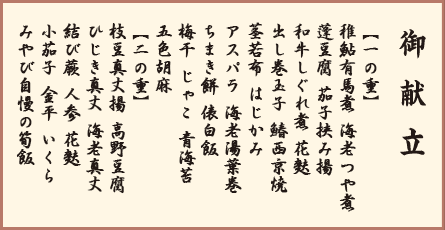 御献立
【一の重】
稚鮎有馬煮 海老つや煮
蓬豆腐 茄子挟み揚
和牛しぐれ煮 花麩
出し巻玉子 鰆西京焼
茎若布 はじかみ
アスパラ 海老湯葉巻
ちまき餅 俵白飯
梅干 じゃこ 青海苔
五色胡麻
【二の重】
枝豆真丈揚 高野豆腐
ひじき真丈 海老真丈
結び蕨 人参 花麩
小茄子 金平 いくら
みやび自慢の筍飯